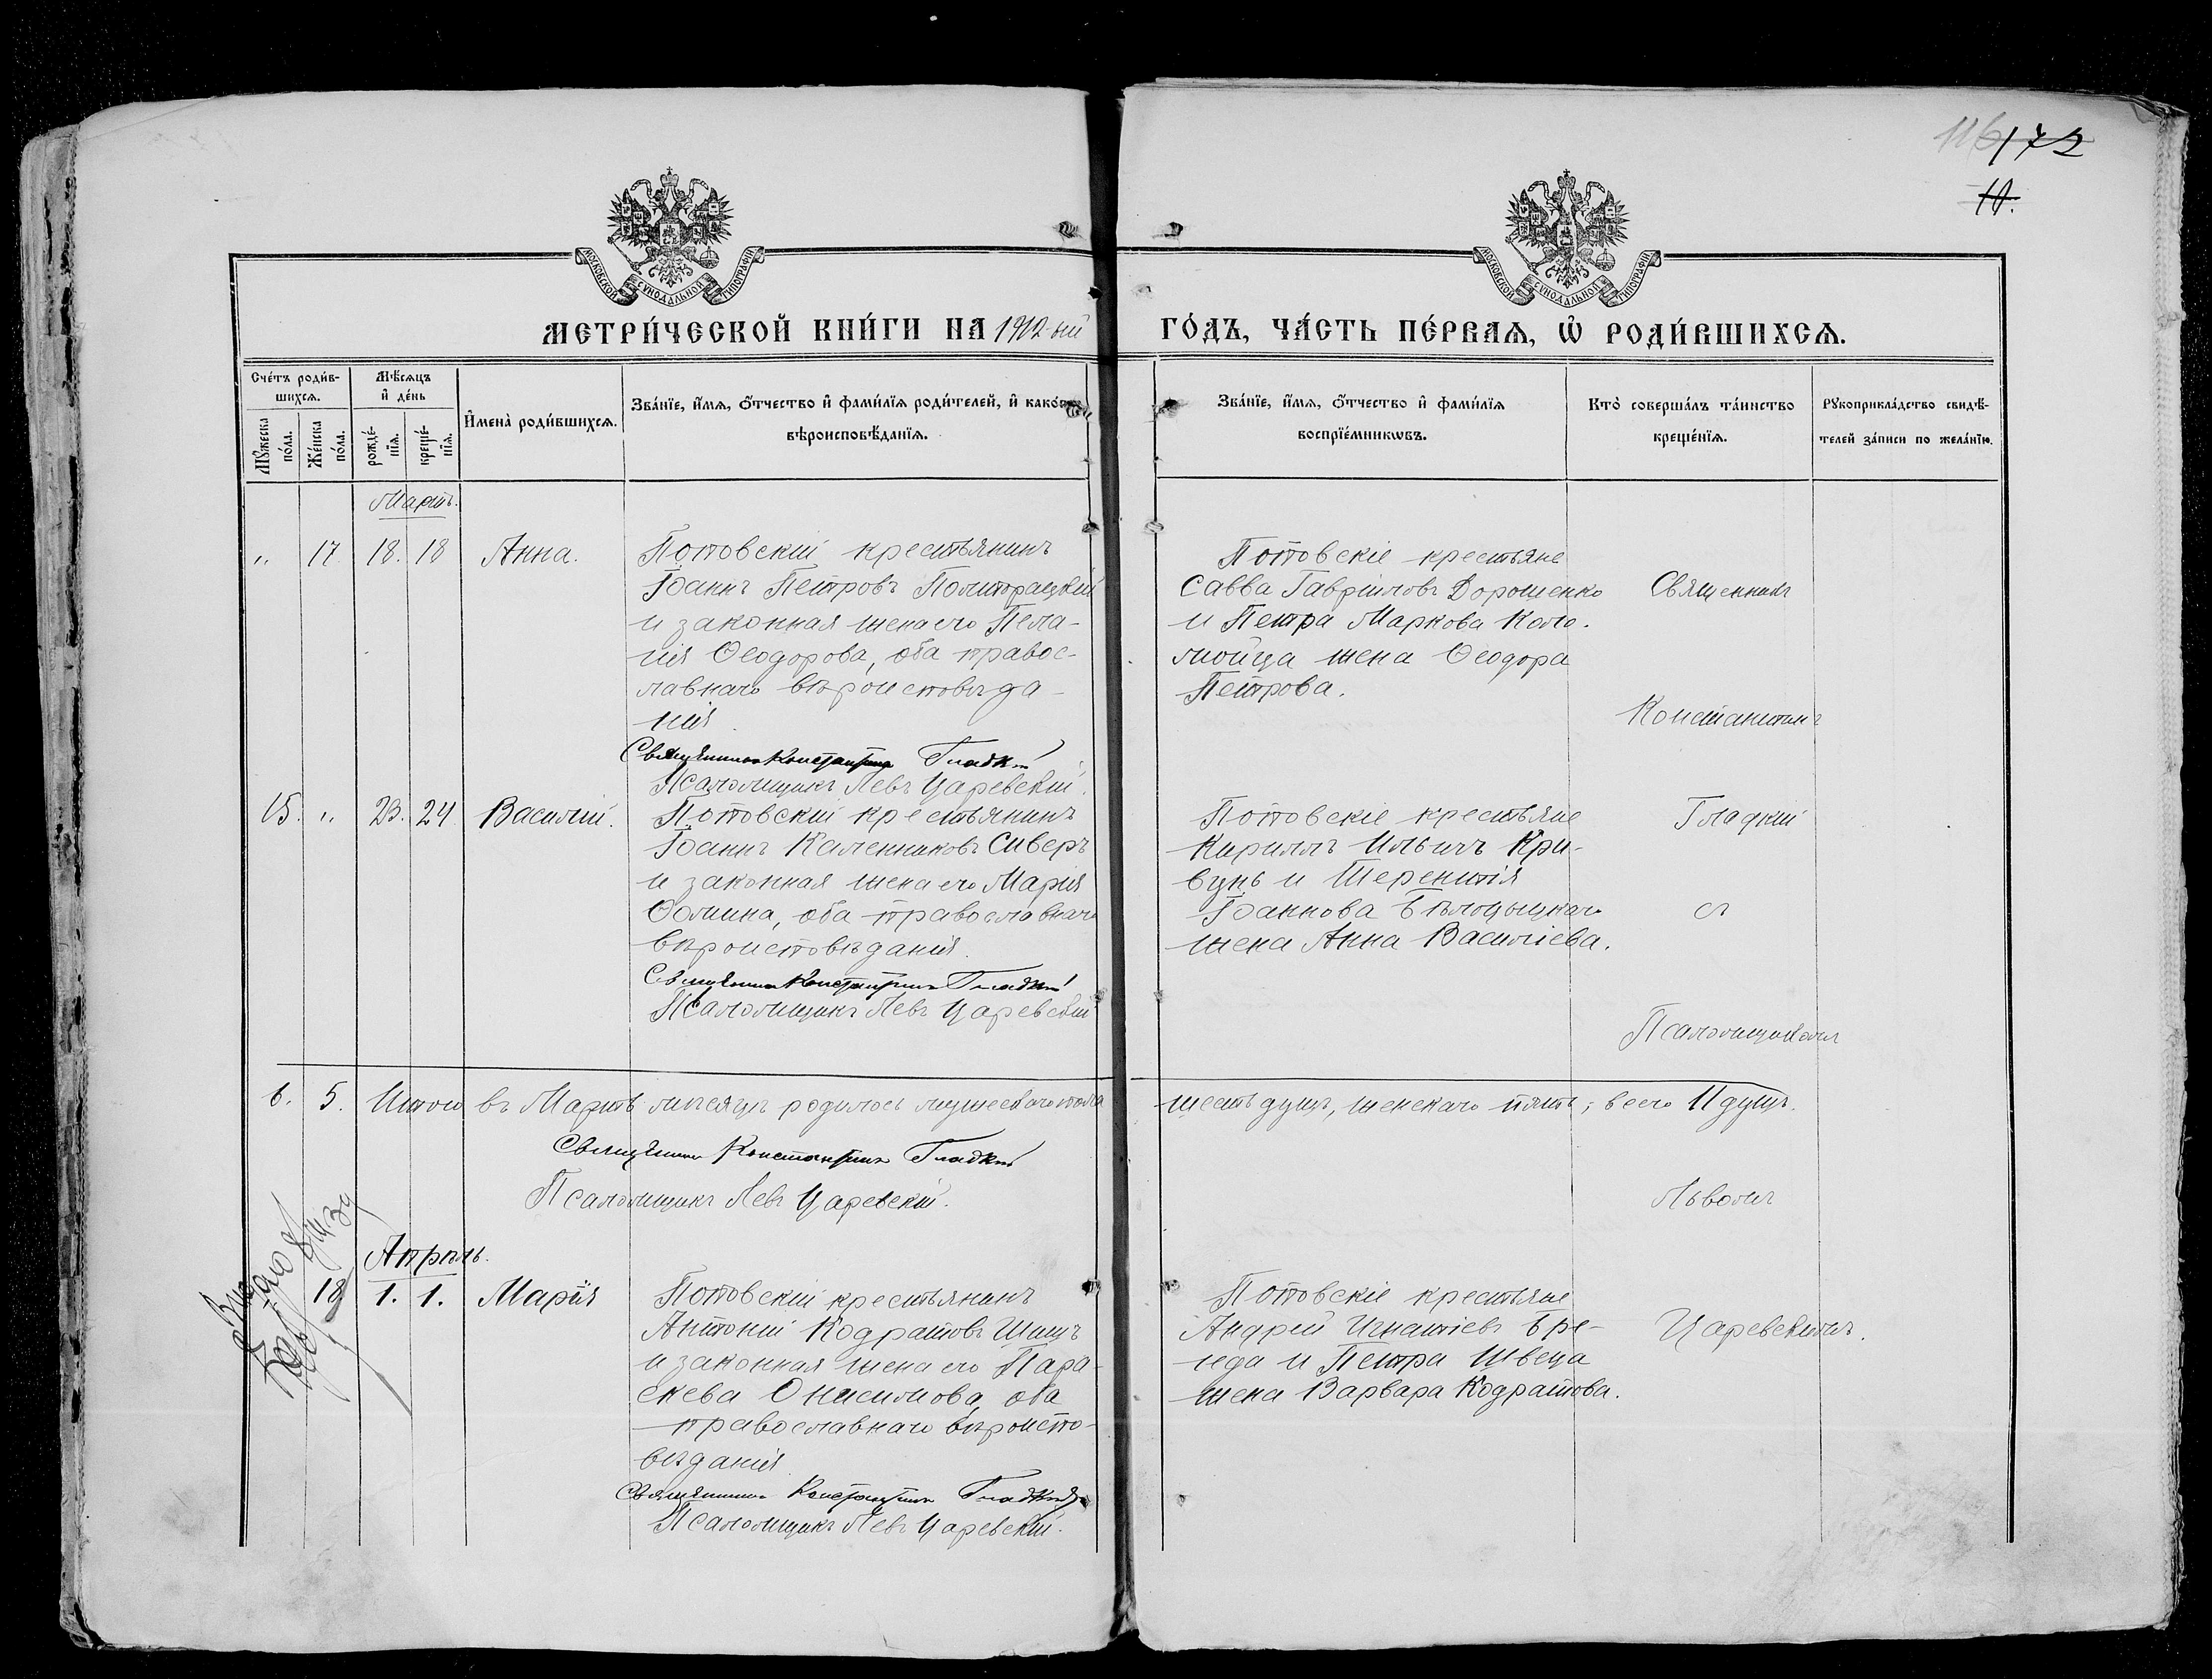 116 172
10.
МОСКОВСКОЙ СѴНОДАЛЬНОЙ ТИПОГРАФІИ
МОСКОВСКОЙ СѴНОДАЛЬНОЙ ТИПОГРАФІИ
МЕТРИ́ЧЕСКОЙ КНИ́ГИ НА 1912-ый ГО́ДЪ, ЧА́СТЬ ПЕ́РВАѦ, Ѽ РОДИ́ВШИХСѦ.
Сче́тъ роди́в-
шихсѧ.
Мꙋ́жеска по́ла.
Же́нска по́ла.
Мѣ́сѧцъ
и҆ де́нь
рожде́-
нїѧ.
креще́-
нїѧ.
И҆мена̀ роди́вшихсѧ.
Зва́нїе, и҆́мѧ, ѻ҆́тчество и҆ фами́лїѧ роди́телей, и҆ како́гѡ
вѣроисповѣ́данїѧ.
Зва́нїе, и҆́мѧ, ѻ҆́тчество и҆ фами́лїѧ
воспрїе́мникѡвъ.
Кто̀ соверша́лъ та́инство
креще́нїѧ.
Рꙋкоприкла́дство свидѣ́-
телей за́писи по жела́нїю.
Мартъ.
" 17 18. 18 Анна.
Поповскій крестьянинъ
Іоаннъ Петровъ Полторацкій
и законная жена его Пела-
гія Ѳеодорова, оба правос-
лавнаго вѣроисповѣда-
нія.
Священникъ Константинъ Гладкій
Псаломщикъ Левъ Царевскій.
Поповскіе крестьяне
Савва Гавріиловъ Дорошенко
и Петра Маркова Коло-
мойца жена Ѳеодора
Петрова.
Священникъ
Константинъ
15. " 23. 24 Василій.
Поповскій крестьянинъ
Іоаннъ Каленниковъ Сиверъ
и законная жена его Марія
Ѳомина, оба православнаго
вѣроисповѣданія.
Священникъ Константинъ Гладкій
Псаломщикъ Левъ Царевскій
Поповскіе крестьяне
Кириллъ Ильичъ Кри-
вунь и Терентія
Іоаннова
жена Анна Василіева.
Гладкій
съ
Псаломщикомъ
6. 5. Итого въ Мартѣ мѣсяцѣ родилось мужескаго пола шесть душъ, женскаго пять; всего 11 душъ.
Священникъ Константинъ Гладкій
Псаломщикъ Левъ Царевскій.
Львомъ
Апрѣль.
18 1. 1. Марія
Поповскій крестьянинъ
Антоній Кодратовъ Шищъ
и законная жена его Пара-
скева Онисимова, оба
православнаго вѣроиспо-
вѣданія
Священникъ Константинъ Гладкій
Псаломщикъ Левъ Царевскій.
Поповскіе крестьяне
Андрей Игнатіевъ Бре-
геда и Петра Швеца
жена Варвара Кодратова.
Царевскимъ.